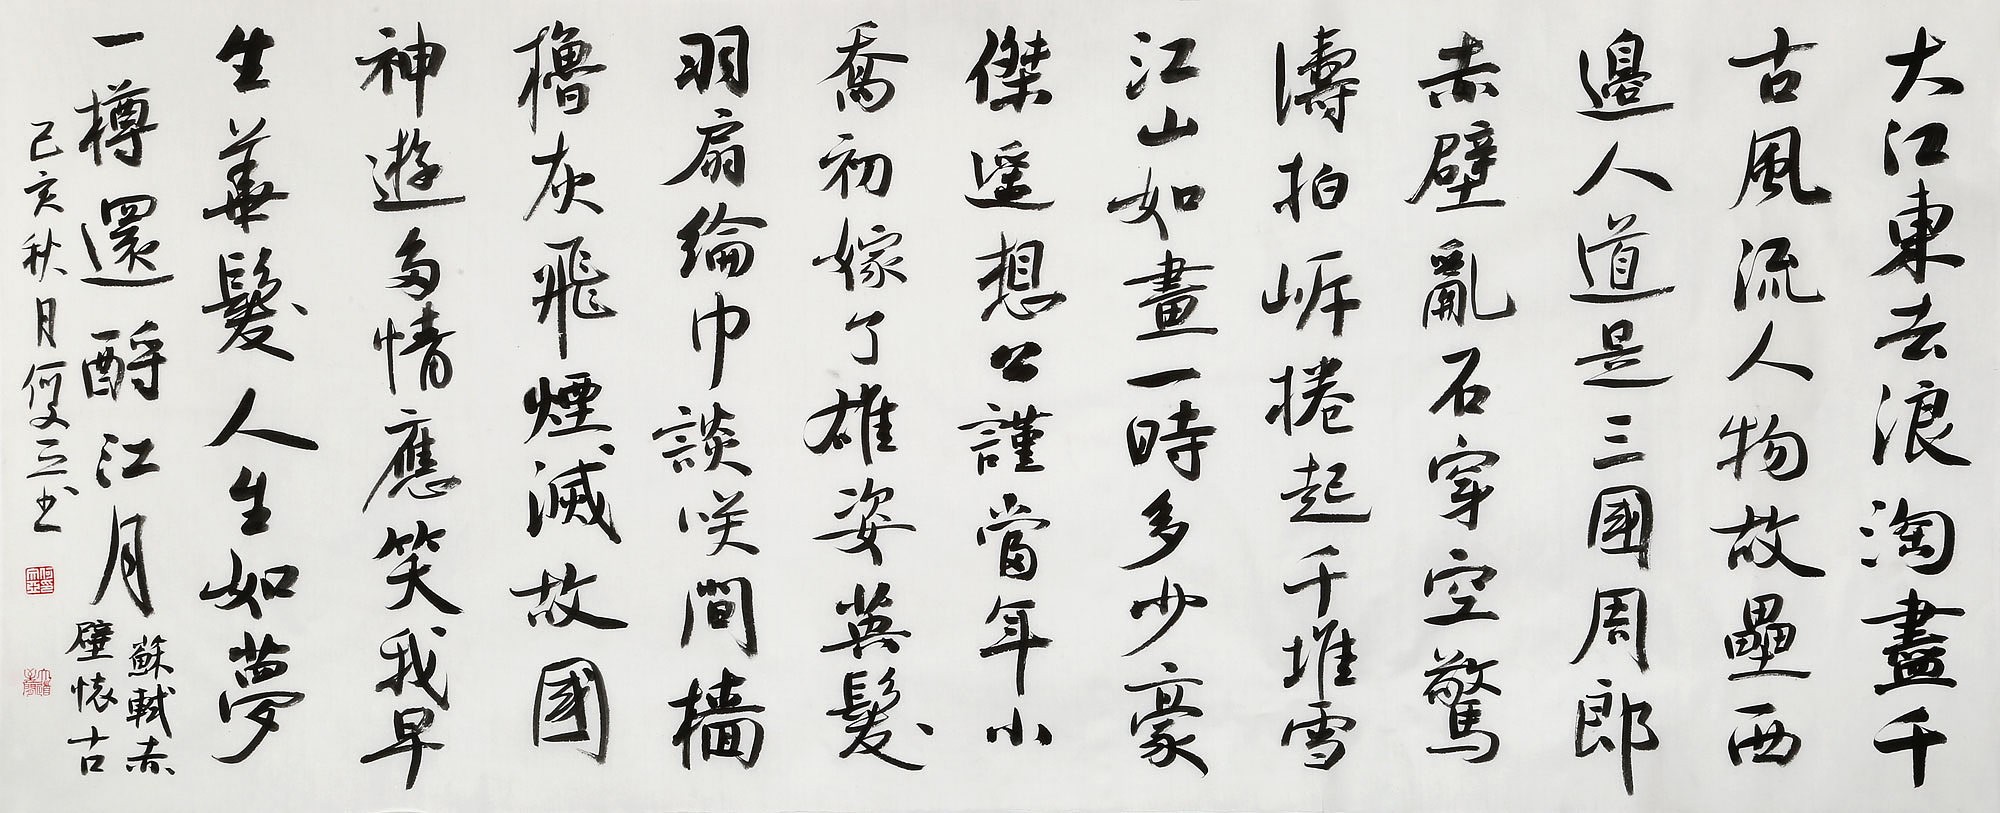 大江東去浪淘盡千
古風流人物故壘西
邊人道是三國周郎
赤壁亂石穿空驚
濤拍岸捲起千堆雪
江山如畫一時多少豪
傑遥想公謹當年小
喬初嫁了雄姿英髮
羽扇綸巾談咲間檣
櫓灰飛煙滅故國
神遊多情應笑我早
生華髮人生如夢
一樽還酹江月
蘇軾赤
壁懷古
己亥秋月何文立书